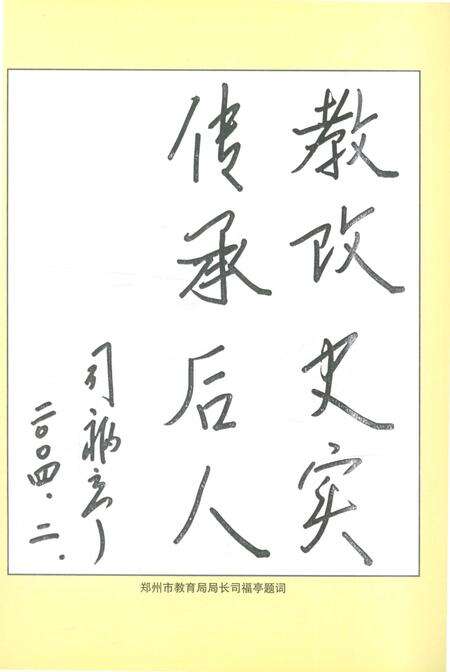 教改史实
传承后人
司福亭
二〇〇四.二.
郑州市教育局局长司福亭题词